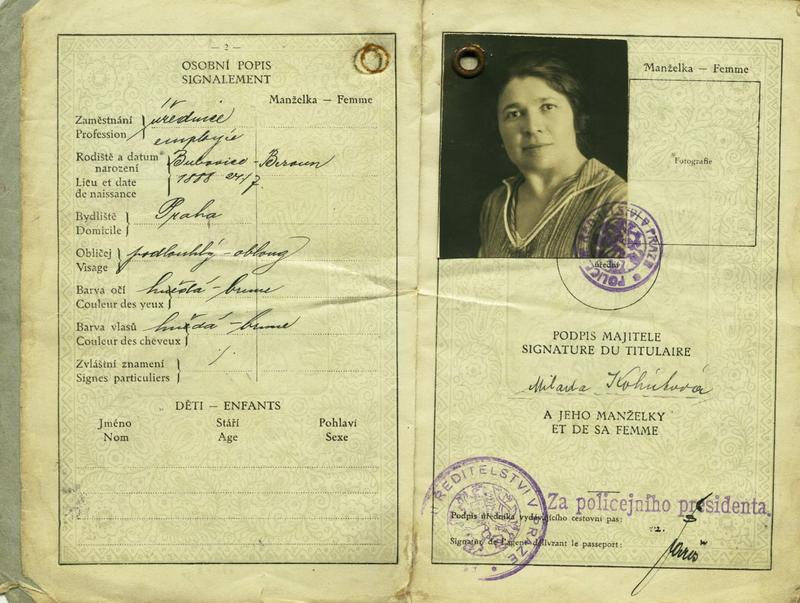 — 2 —
OSOBNÍ POPIS
SIGNALEMENT
Manželka — Femme
Zaměstnání
Profession
úřednice
employée
Rodiště a datum narození
Lieu et date de naissance
Bubovice - Beroun
1888 24/7
Bydliště
Domicile
Praha
Obličej
Visage
podlouhlý - oblong
Barva očí
Couleur des yeux
hnědá - brune
Barva vlasů
Couleur des cheveux
hnědá - brune
Zvláštní znamení
Signes particuliers
DĚTI — ENFANTS
Jméno Stáří Pohlaví
Nom Age Sexe
Manželka — Femme
Fotografie
úřední
PODPIS MAJITELE
SIGNATURE DU TITULAIRE
Milada
A JEHO MANŽELKY
ET DE SA FEMME
ŘEDITELSTVÍ V PRAZE
Za policejního presidenta.
Podpis úředníka vydávajícího cestovní pas:
Signature de l'agent délivrant le passeport: